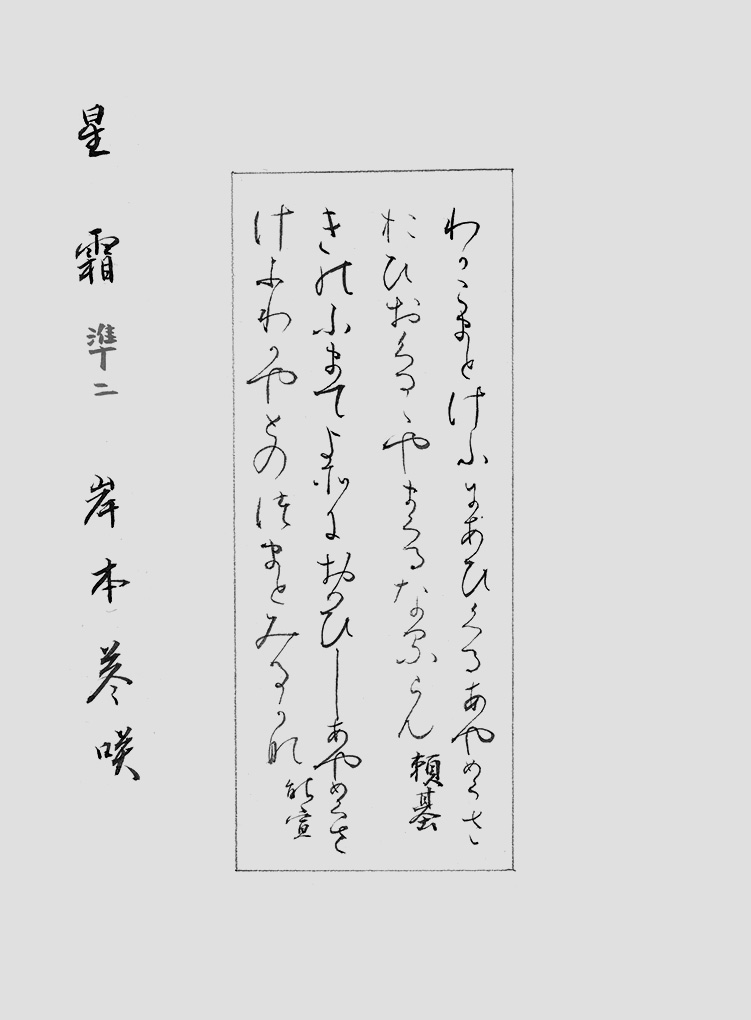 わかこまとけふにあひくるあやめくさ
おひおくるゝやまくるなるらん
頼基
きのふまてよそにおもひしあやめくさ
けふわかやとのつまとみるかな
能宣
星霜 準十二 岸本 咲